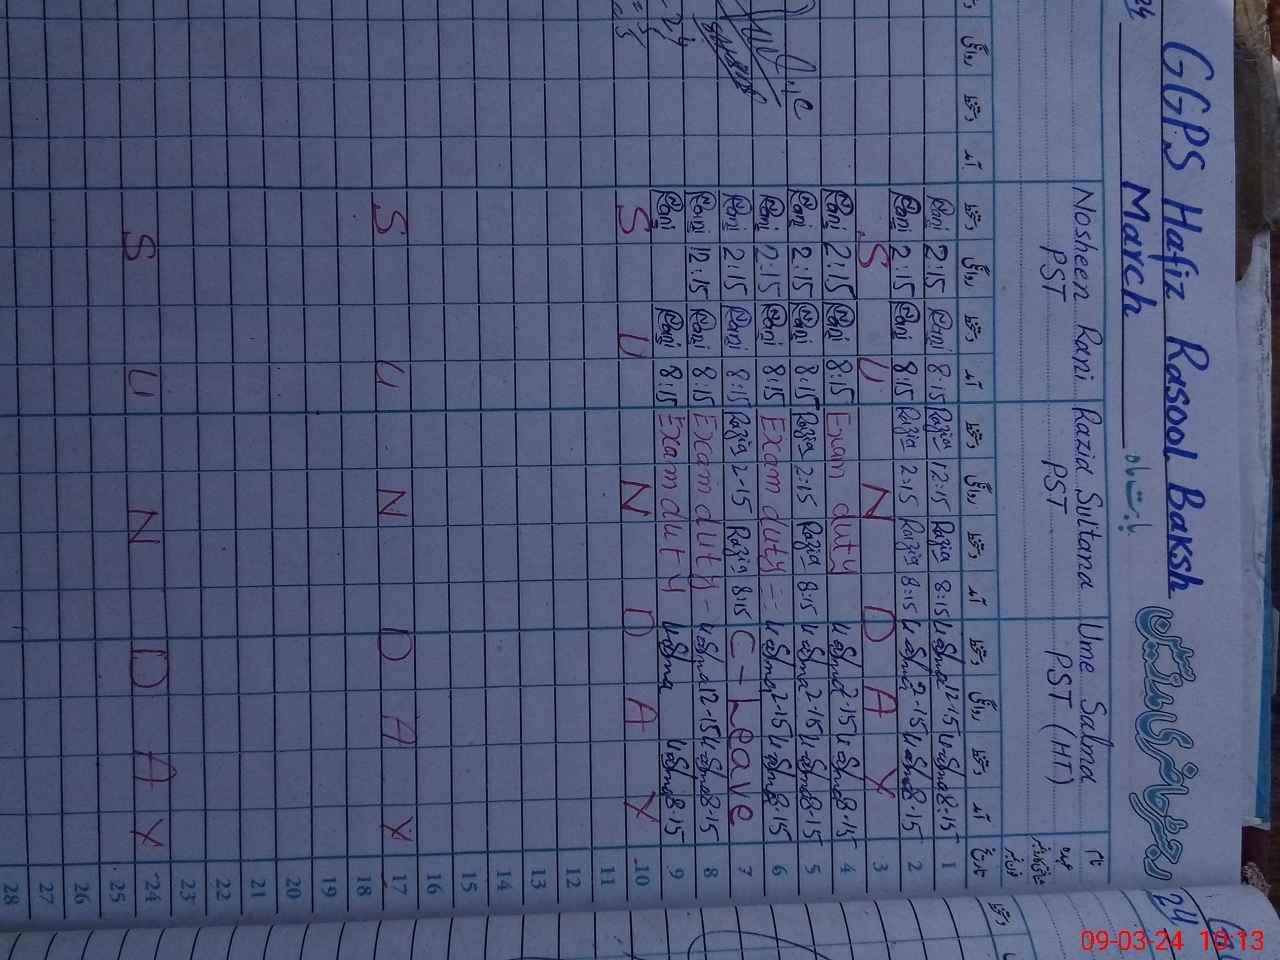 GGPS Hafiz Rasool Baksh
March
24
Nosheen Rani Razia Sultana Ume Salma
PST PST PST (HT)
دستخط روانگی دستخط آمد دستخط روانگی دستخط آمد دستخط روانگی دستخط آمد تاریخ
Rani 2:15 Rani 8:15 Razia 12:15 Razia 8:15 U Salma 12-15 U Salma 8:15 1
Rani 2:15 Rani 8:15 Razia 2:15 Razia 8:15 U Salma 2-15 U Salma 8:15 2
S U N D A Y 3
Rani 2:15 Rani 8:15 Exam duty U Salma 2-15 U Salma 8-15 4
Rani 2:15 Rani 8:15 Razia 2:15 Razia 8:15 U Salma 2-15 U Salma 8-15 5
Rani 2:15 Rani 8:15 Exam duty U Salma 2-15 U Salma 8-15 6
Rani 2:15 Rani 8:15 Razia 2-15 Razia 8:15 C-Leave 7
Rani 12:15 Rani 8:15 Exam duty U Salma 12-15 U Salma 8-15 8
Rani Rani 8:15 Exam duty U Salma U Salma 8-15 9
S U N D A Y 10
11
12
13
14
15
16
S U N D A Y 17
18
19
20
21
22
23
S U N D A Y 24
25
26
27
28
09-03-24 10:13